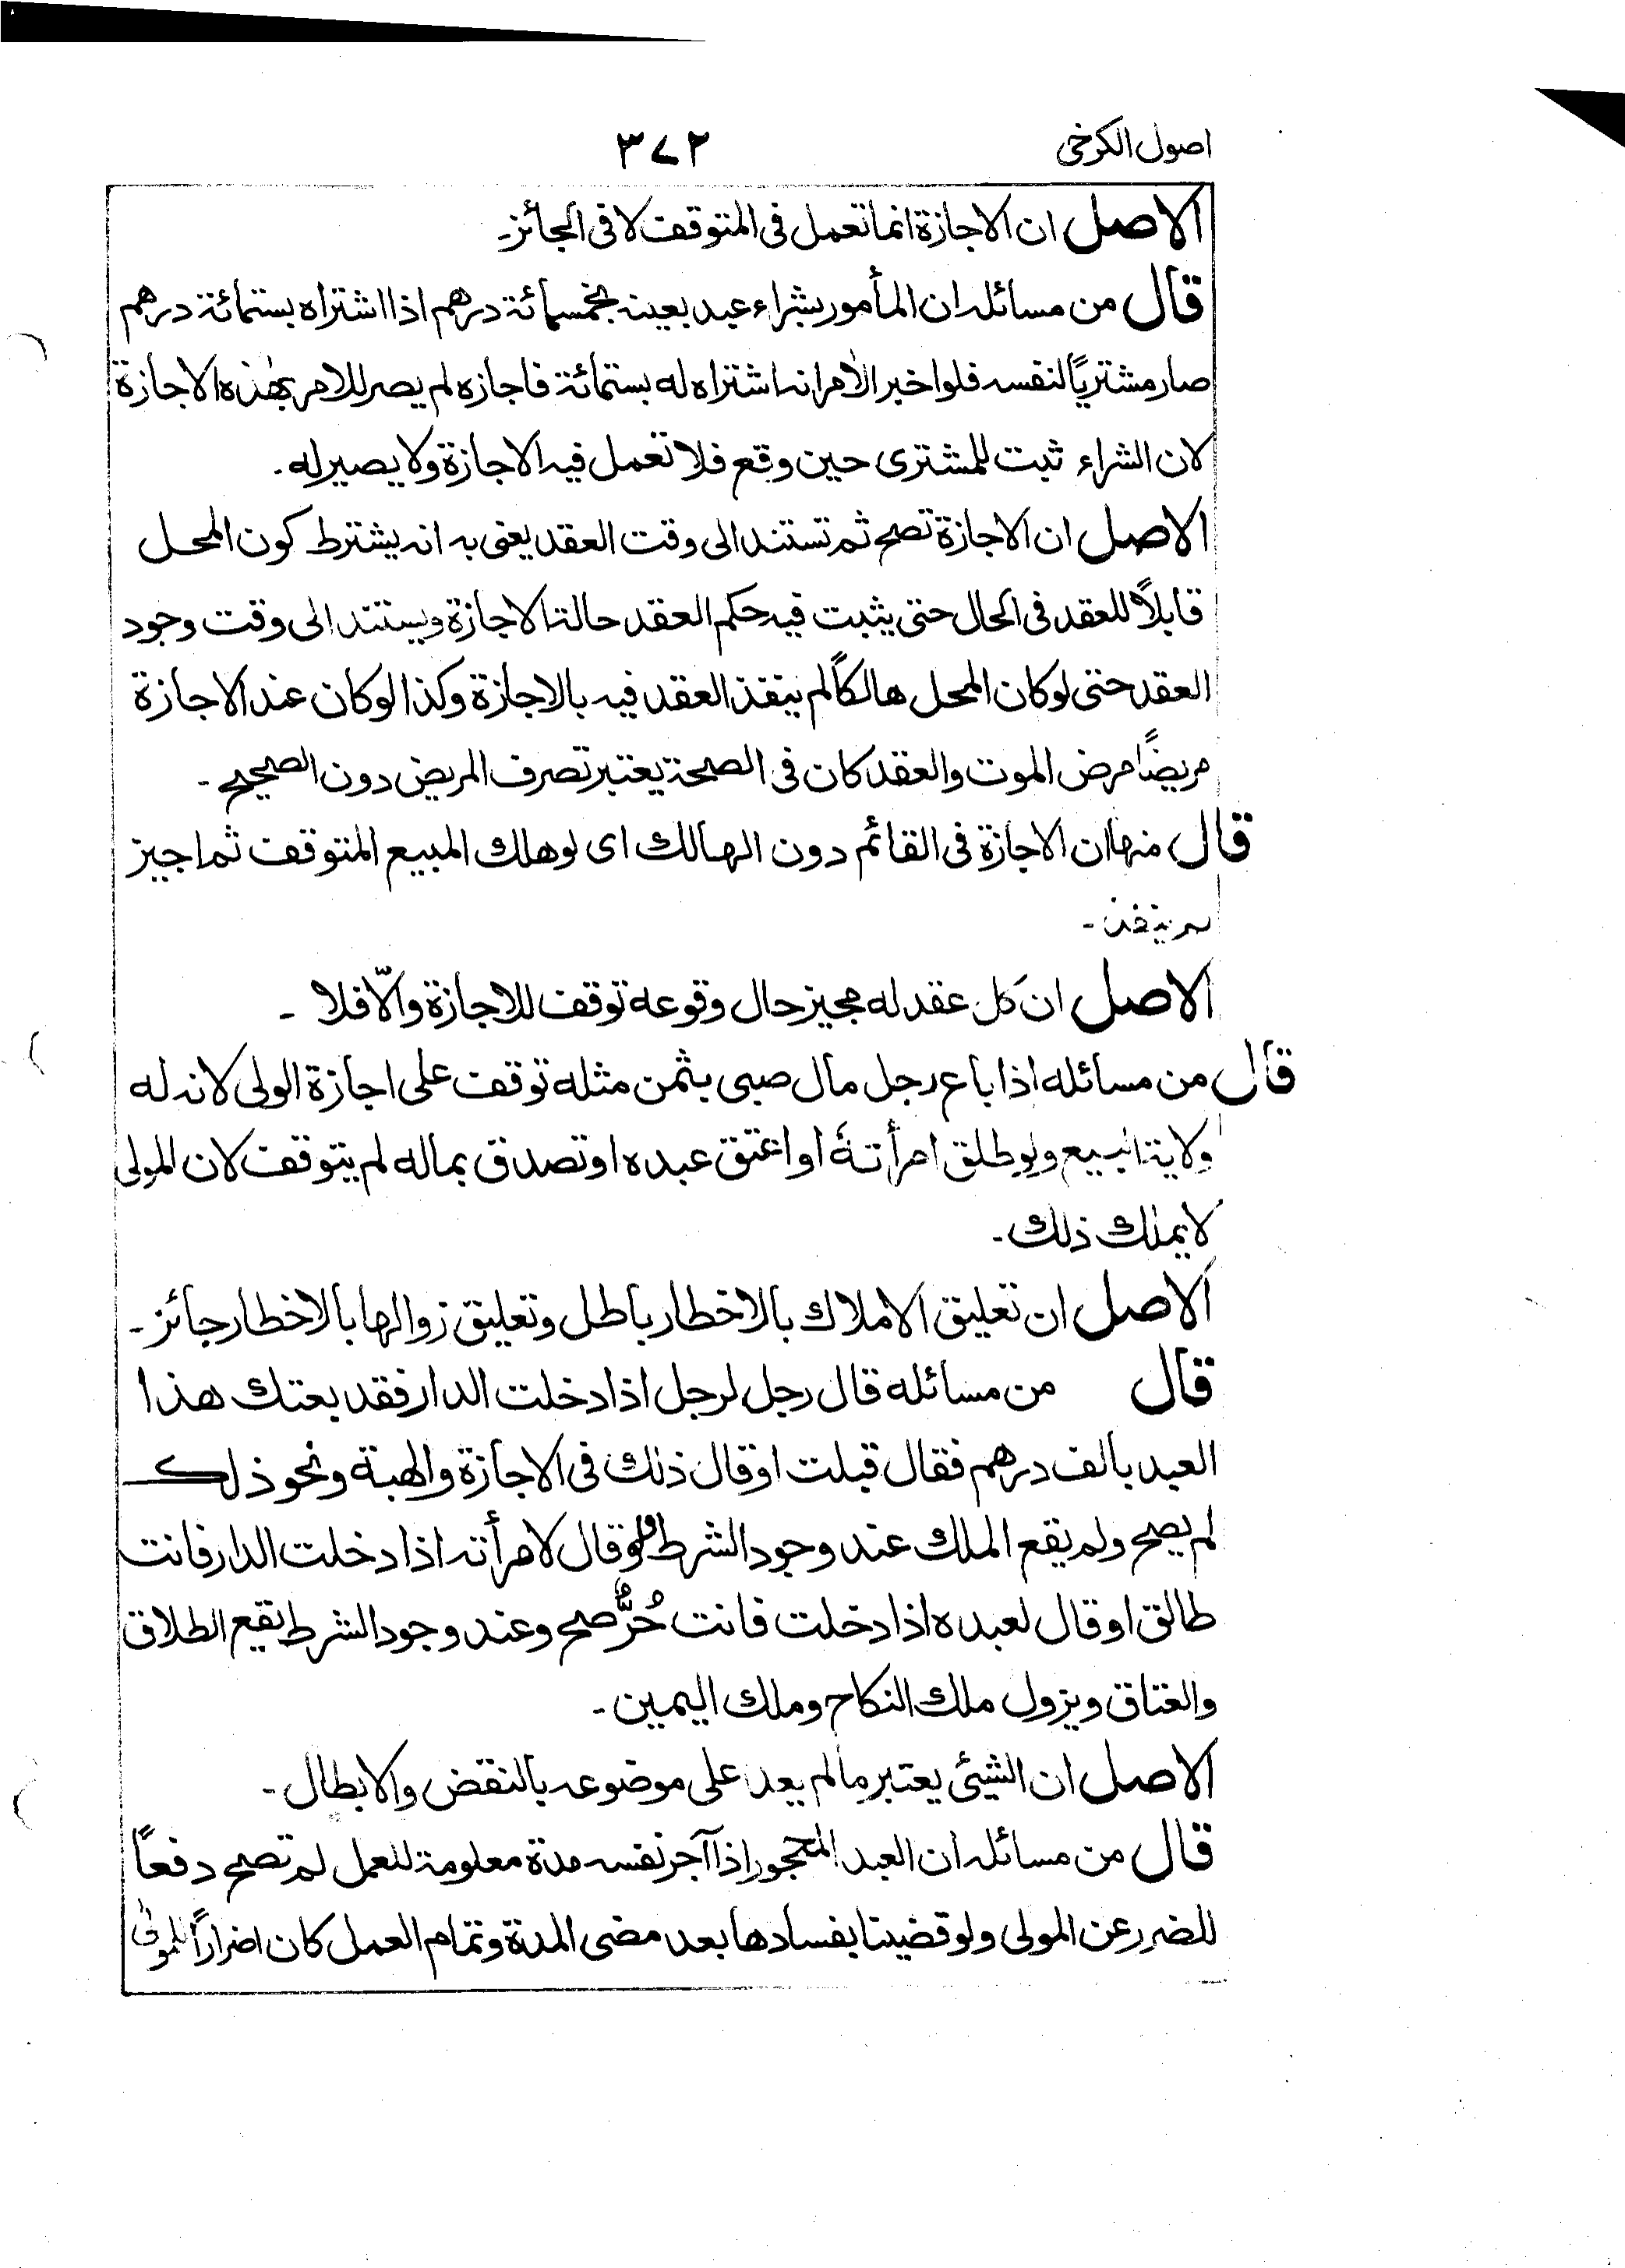 اصول الكرخى
٣٧٢
الاصل ان الاجازة انما تعمل فى المتوقف لا فى الجائز-
قال من مسائله ان المأمور بشراء عبد بعينه بخمسمائة درهم اذا اشتراه بستمائة درهم
صار مشتريًا لنفسه فلو اخبر الاٰمر انه اشتراه له بستمائة فاجازه لم يصر للاٰمر بهٰذه الاجازة
لان الشراء ثبت للمشترى حين وقع فلا تعمل فيه الاجازة ولا يصير له-
الاصل ان الاجازة تصح ثم تستند الى وقت العقد يعنى به انه يشترط كون المحل
قابلاً للعقد فى الحال حتى يثبت فيه حكم العقد حالة الاجازة ويستند الى وقت وجود
العقد حتى لو كان المحل هالكاً لم ينفذ العقد فيه بالاجازة وكذا لو كان عند الاجازة
مريضاً مرض الموت والعقد كان فى الصحة يعتبر تصرف المريض دون الصحيح-
قال منها ان الاجازة فى القائم دون الهالك اى لو هلك المبيع المتوقف ثم اجيز
لم ينفذ-
الاصل ان كل عقد له مجيز حال وقوعه توقف للاجازة والّا فلا-
قال من مسائله اذا باع رجل مال صبى بثمن مثله توقف على اجازة الولى لانه له
ولاية البيع ولو طلق امرأتهٗ او اعتق عبده او تصدق بماله لم يتوقف لان المولى
لا يملك ذلك-
الاصل ان تعليق الاملاك بالاخطار باطل وتعليق زوالها بالاخطار جائز-
قال من مسائله قال رجل لرجل اذا دخلت الدار فقد بعتك هذا
العبد بالف درهم فقال قبلت او قال ذلك فى الاجازة والهبة ونحو ذلك
لم يصح ولم يقع الملك عند وجود الشرط ولو قال لامرأته اذا دخلت الدار فانت
طالق او قال لعبده اذا دخلت فانت حُرٌّ صح وعند وجود الشرط يقع الطلاق
والعتاق ويزول ملك النكاح وملك اليمين-
الاصل ان الشيئ يعتبر ما لم يعد على موضوعه بالنقض والابطال-
قال من مسائله ان العبد المحجور اذا آجر نفسه مدة معلومة للعمل لم تصح دفعاً
للضرر عن المولى ولو قضينا بفسادها بعد مضى المدة وتمام العمل كان اضراراً للمولىٰ